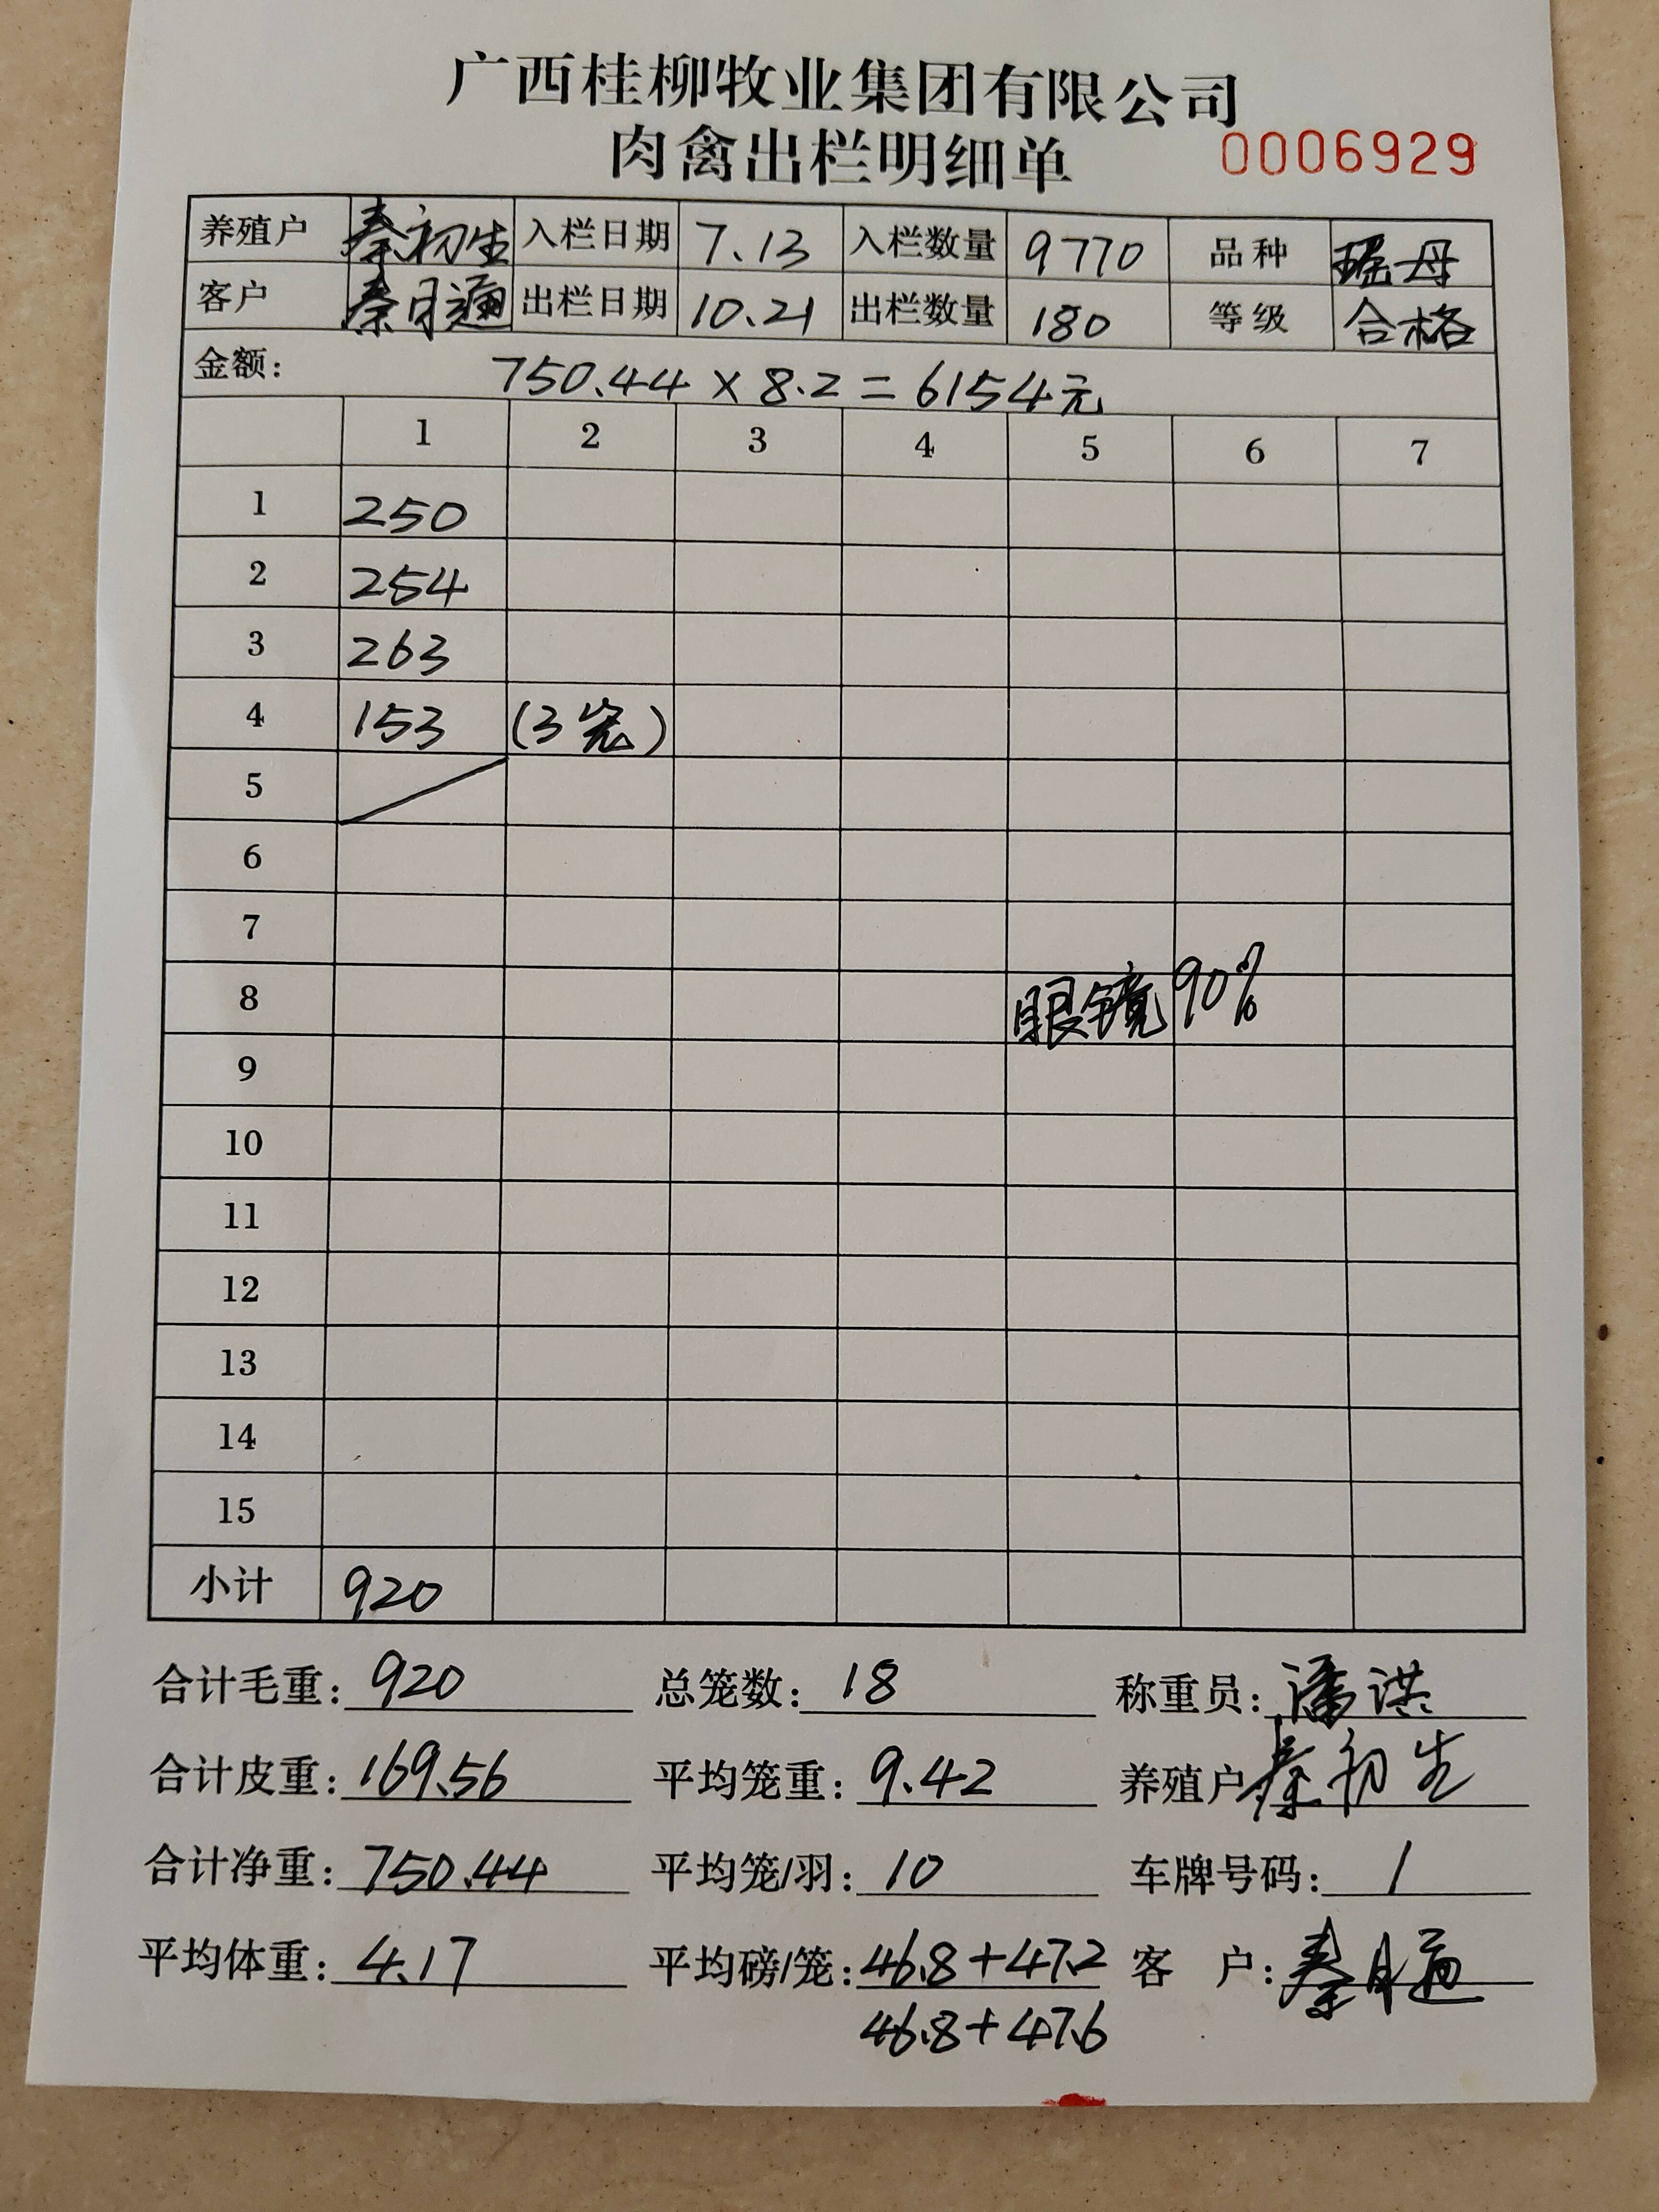 广西桂柳牧业集团有限公司
肉禽出栏明细单 0006929
养殖户 秦初生 入栏日期 7.13 入栏数量 9770 品种 瑶母
客户 秦月通 出栏日期 10.21 出栏数量 180 等级 合格
金额: 750.44 × 8.2 = 6154元
1 2 3 4 5 6 7
1 250
2 254
3 263
4 153 (3笼)
5
6
7
8 眼镜90%
9
10
11
12
13
14
15
小计 920
合计毛重: 920 总笼数: 18 称重员: 潘洪
合计皮重: 169.56 平均笼重: 9.42 养殖户 秦初生
合计净重: 750.44 平均笼/羽: 10 车牌号码: 1
平均体重: 4.17 平均磅/笼: 46.8+47.2 客 户: 秦月通
46.8+47.6